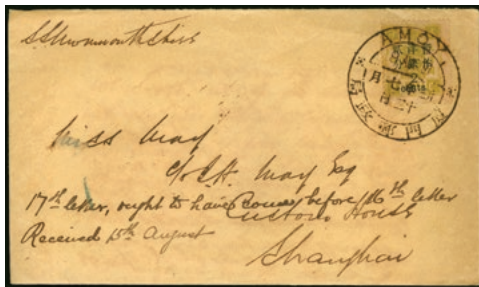 S.S. Monmouthshire
AMOY
月七年
日三十
Miss May
c/o F.A. May Esq
17th letter, ought to have come before 16th letter
Customs House
Received 15th August
Shanghai